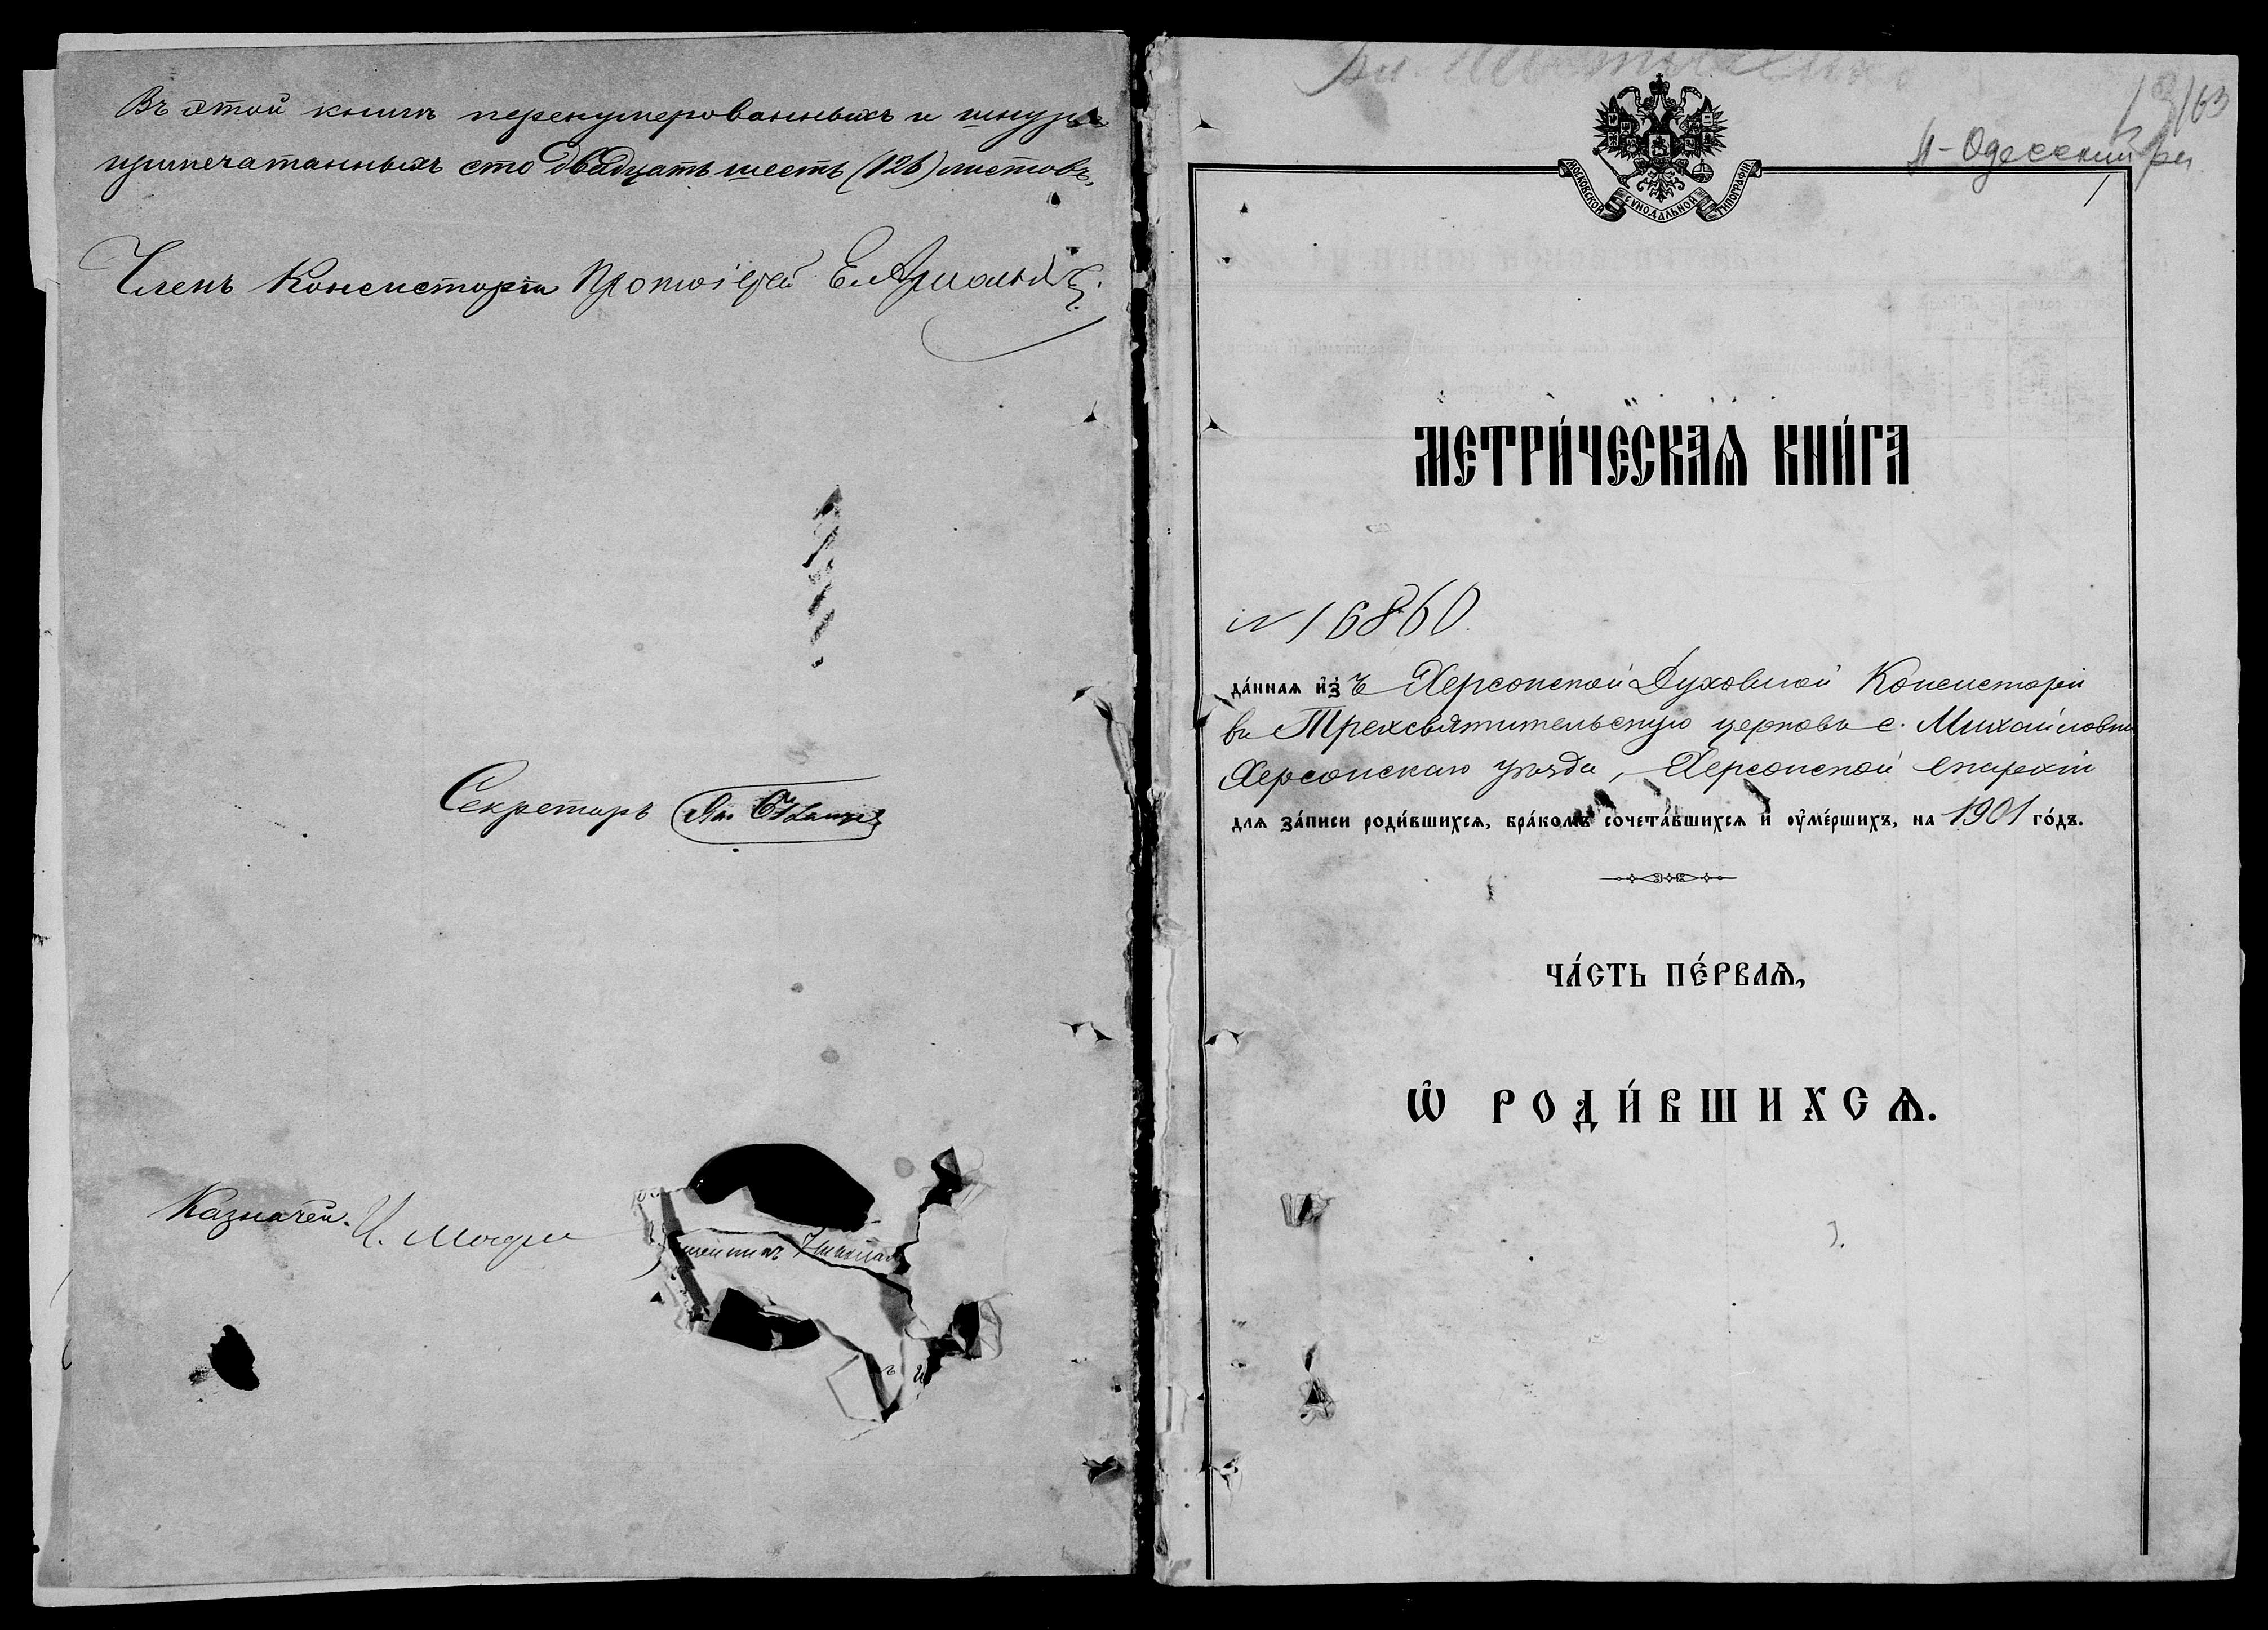 Въ этой книгѣ перенумерованныхъ и шнур
припечатанныхъ сто двадцать шесть (126) листовъ.
Членъ Консисторіи Протоіерей
Секретарь
Казначей.
Н-Одесский р-н
МОСКОВСКОЙ СѴНОДАЛЬНОЙ ТИПОГРАФІИ
МЕТРИ́ЧЕСКАѦ КНИ́ГА
№ 16860.
да́ннаѧ и҆зъ Херсонской Духовной Консисторіи
въ Трехсвятительскую церковь с. Михайловки
Херсонскаго уѣзда, Херсонской епархіи
длѧ за́писи роди́вшихсѧ, бра́комъ сочета́вшихсѧ и҆ ᲂу҆ме́ршихъ, на 1901 го́дъ.
ЧА́СТЬ ПЕ́РВАѦ,
Ѽ РОДИ́ВШИХСѦ.